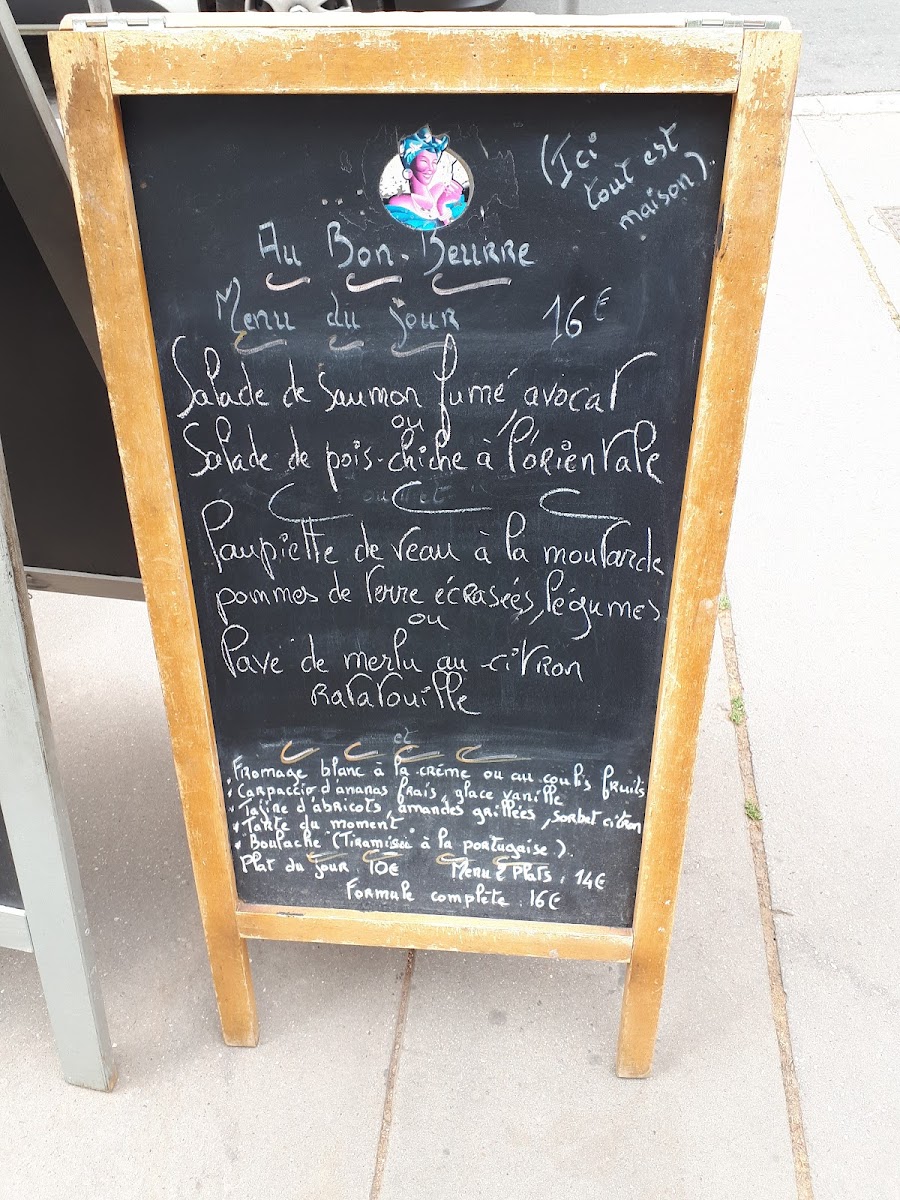 (Ici
tout est
maison).
Au Bon-Beurre
Menu du jour 16€
Salade de saumon fumé, avocat
ou
Salade de pois-chiche à l'orientale
ou et
Paupiette de veau à la moutarde
pommes de terre écrasées, légumes
ou
Pavé de merlu au citron
Ratatouille
et
Fromage blanc à la crème ou au coulis fruits
• Carpaccio d'ananas frais, glace vanille
• Tajine d'abricots, amandes grillées, sorbet citron
• Tarte du moment
• Boulache (Tiramisù à la portugaise).
Plat du jour. 10€ Menu 2 Plats. 14€
Formule complete. 16€